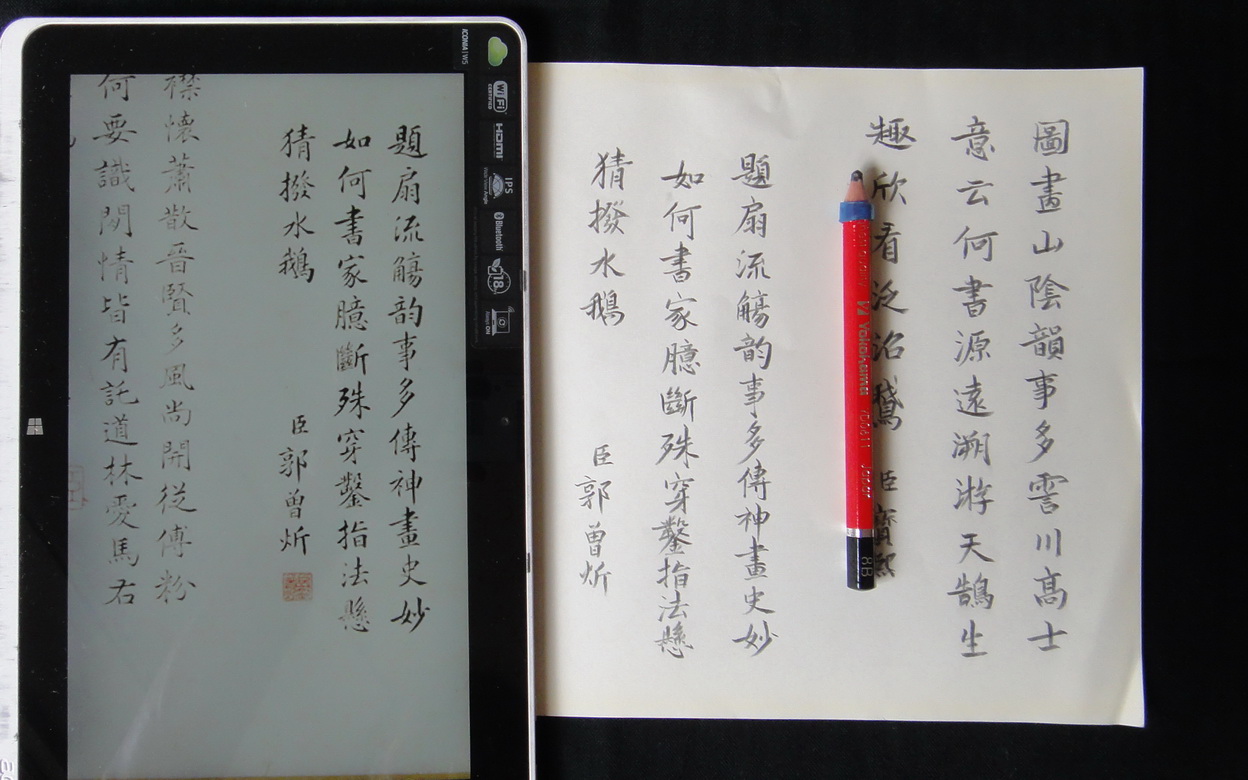 圖畫山陰韻事多雲川高士
意云何書源遠溯游天鵠生
趣欣看泛沼鵞
臣寶熙
題扇流觴韵事多傳神畫史妙
如何書家臆斷殊穿鑿指法懸
猜撥水鵝
臣郭曾炘
題扇流觴韵事多傳神畫史妙
如何書家臆斷殊穿鑿指法懸
猜撥水鵝
臣郭曾炘
襟懷蕭散晉賢多風尚開從傅粉
何要識閑情皆有託道林愛馬右
ICONIA W5
WiFi
CERTIFIED
HDMI
IPS
Bluetooth
18
Yokohama
Jabor
8B